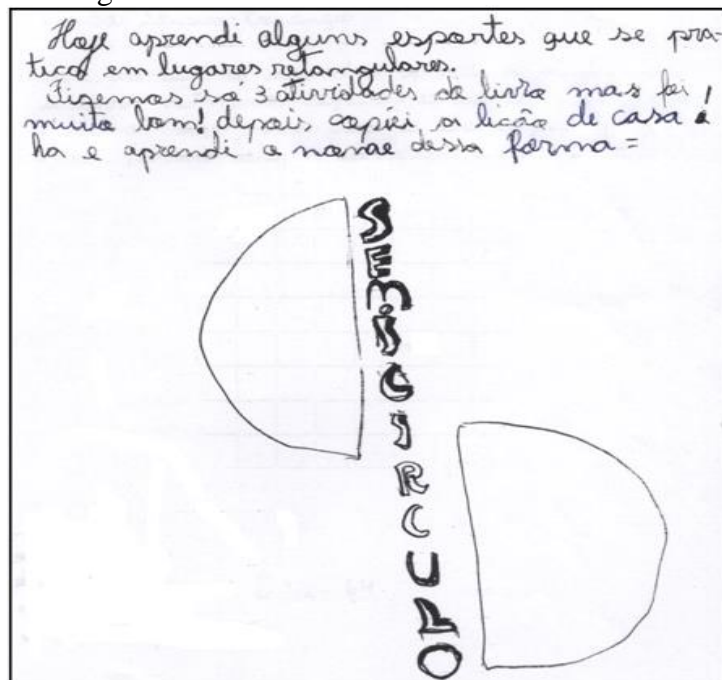 Hoje aprendi alguns esportes que se pra-
tica em lugares retangulares.
Fizemos só 3 atividades do livro mas foi
muito bom! depois copiei a lição de casa!
ha e aprendi o nome dessa forma =
SEMISCIRCULO